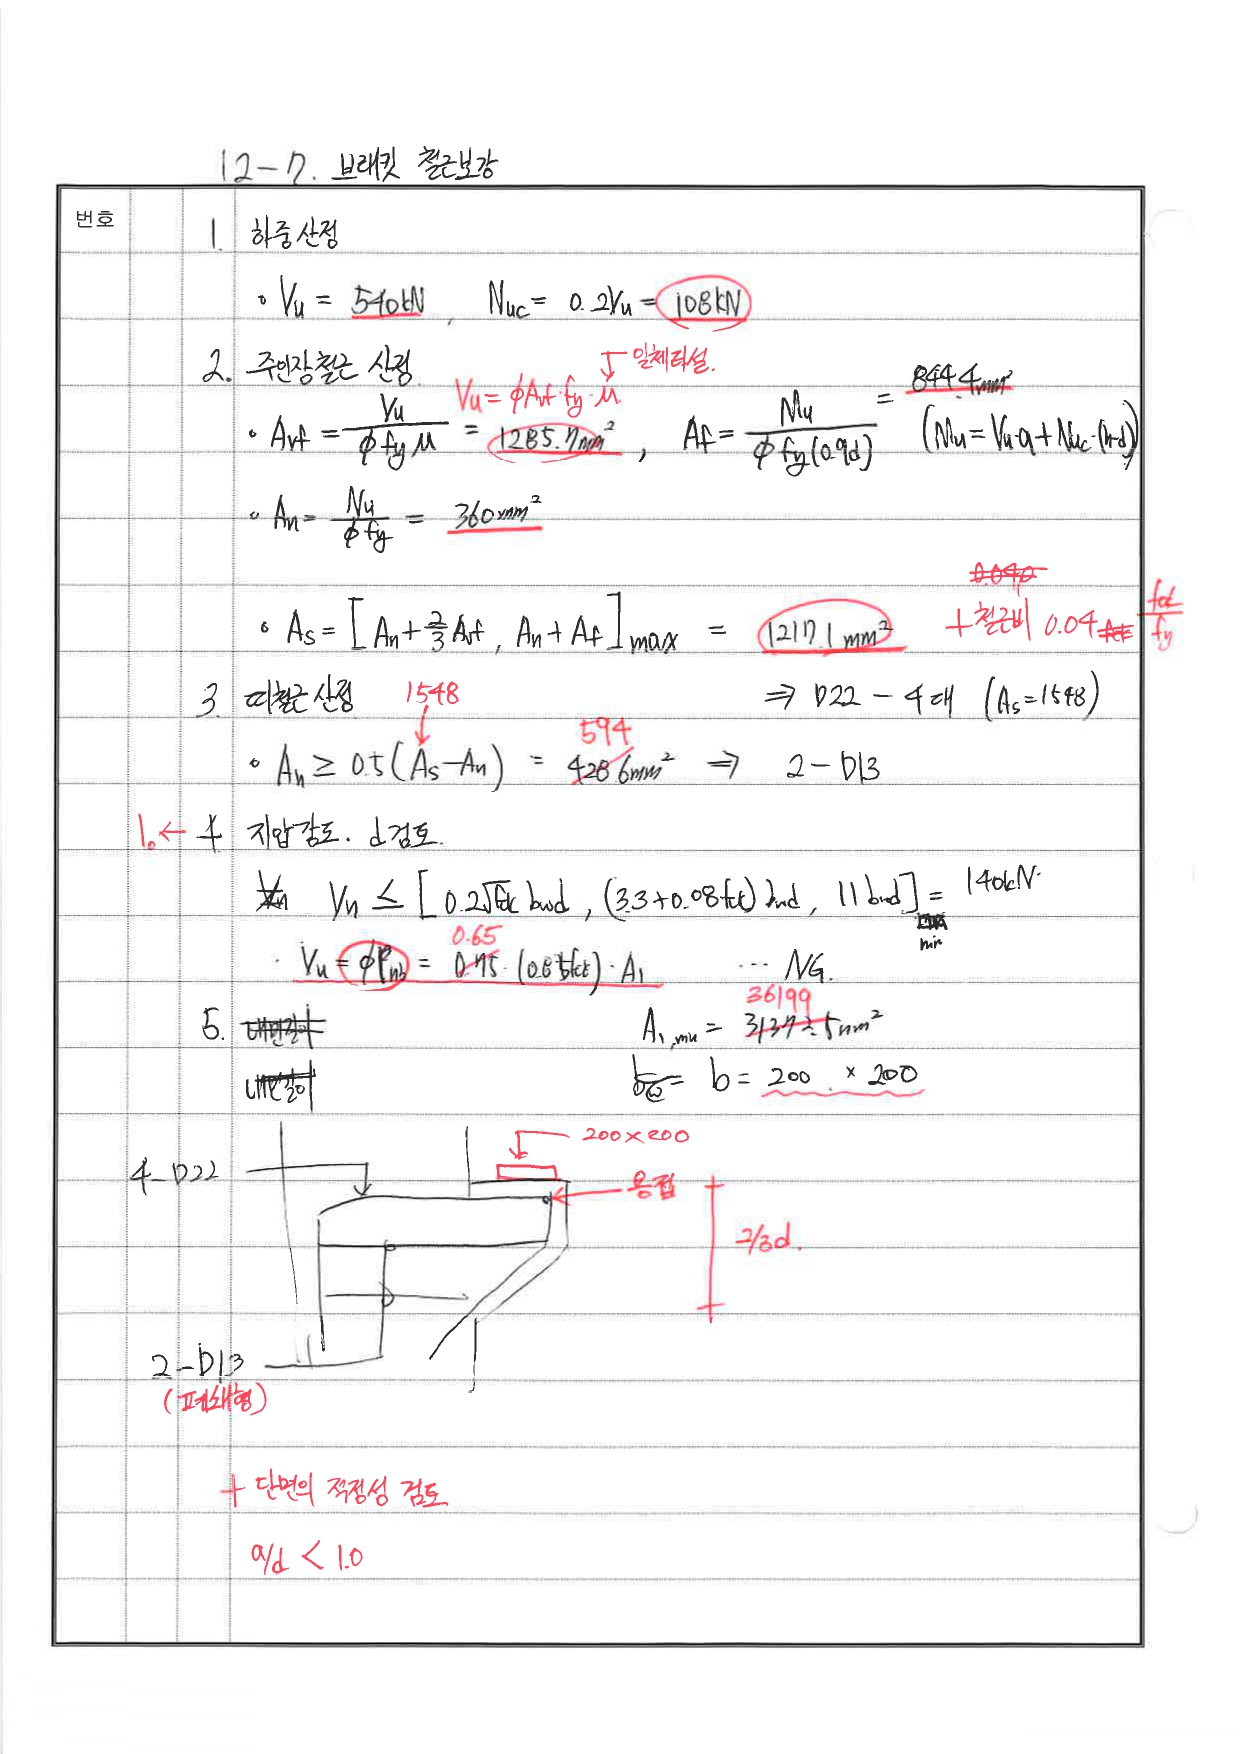 12-7. 브래킷 철근보강
번호
1. 하중산정
∘ Vu = 540kN, Nuc = 0.2Vu = 108kN
2. 주인장철근 산정.
일체타설.
Vu = φAvf·fy·μ
∘ Avf = Vu / φ fy μ = 1285.7mm², Af = Mu / φ fy(0.9d) = 844.4mm² (Mu = Vu·a + Nuc·(h-d))
∘ An = Nu / φ fy = 360mm²
0.040
∘ As = [An + 2/3 Avf, An + Af]max = 1217.1mm² + 철근비 0.04 fck/fy
3. 띠철근 산정 1548 ⇒ D22 - 4대 (As=1548)
594
∘ An ≥ 0.5(As - An) = 428.6mm² ⇒ 2-D13
1. ← 4 지압강도. d 검토.
Vn Vn ≤ [0.2√fck bwd, (3.3+0.08fck) bwd, 11 bwd]min = 140kN.
0.65
· Vu = φPnb = 0.75·(0.85fck)·A1 … NG.
36199
5. 내민길이 A1,min = 31372.5mm²
내민길이 bw = b = 200 × 200
200×200
4-D22
용접
2/3d.
2-D13
(폐쇄형)
+ 단면의 적정성 검토
a/d < 1.0